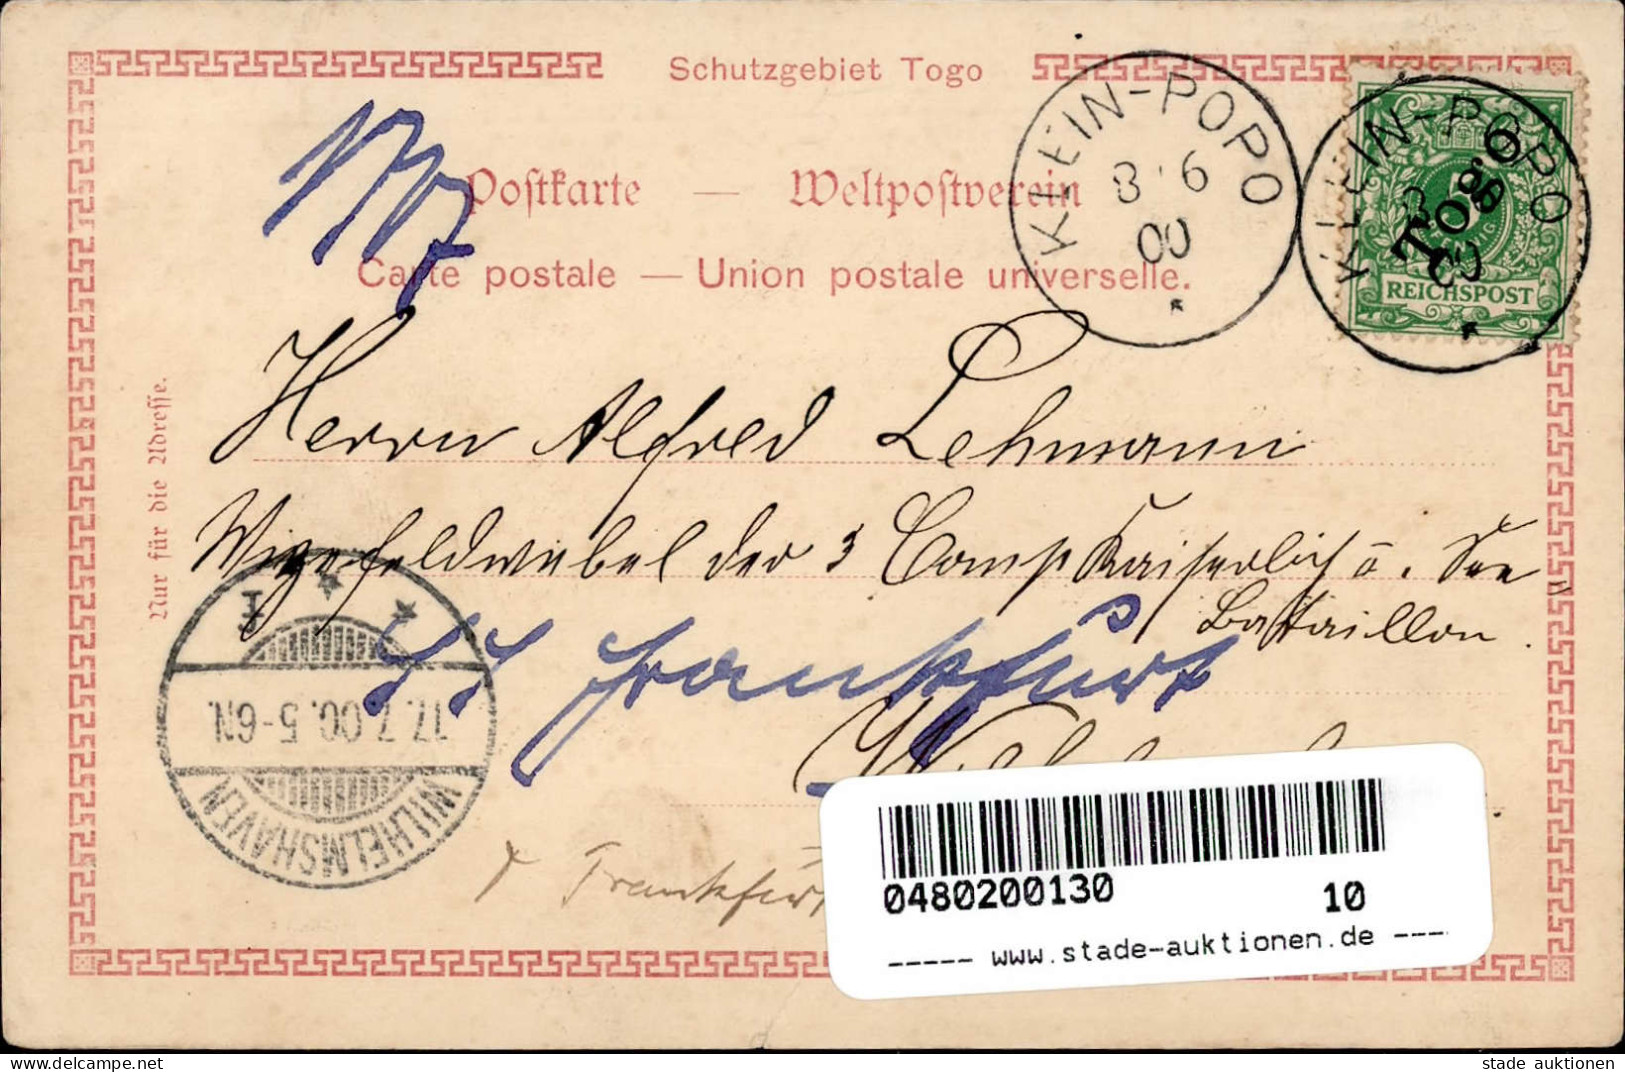 Schutzgebiet Togo
KLEIN-POPO
3 6
00
KLEIN-POPO
3
00
Togo
REICHSPOST
Postkarte — Weltpostverein
Carte postale — Union postale universelle.
Nur für die Adresse.
Herrn Alfred Lehmann
Wizefeldwebel der 3 Comp Kaiserlich
See
Bataillon.
Frankfurt
WILHELMSHAVEN
17.7.00.5-6N.
I
Frankfurt
0480200130 10
----- www.stade-auktionen.de ----
stade auktionen